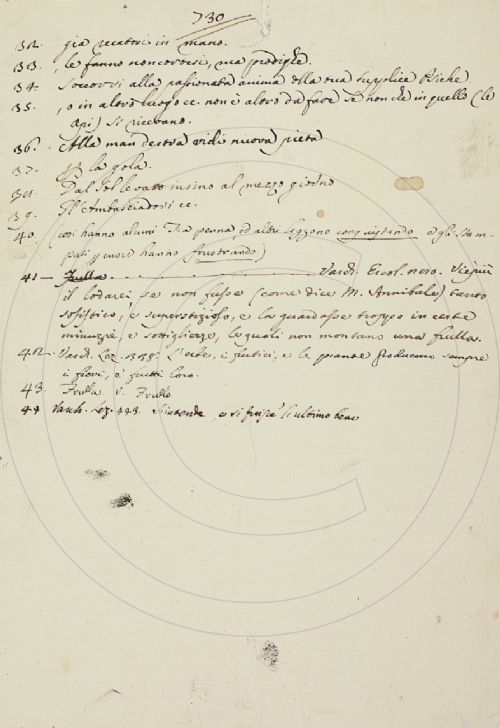 730
32. già recatosi in mano.
33. , le fanno non covorsi, ma prodighe.
34. Soccorri alla passionata anima della tua supplice Psiche
35. , o in altro luogo ec. non è altro da fare se non che in quello (le
api) si ricevano.
36. Alla man destra vidi nuova pieta
37. la gola.
38. Dal Sol levato insino al mezzo giorno
39. Gl'Ambasciadori ec.
40. così hanno alcuni penna, ed altri leggono conquistando e gli stam-
pati hanno frustrando)
41 — Frulla. Varch. Ercol.
il loderei, se non fusse (come dice M. Annibale) tanto
sofistico, e superstizioso, e la guardasse troppo in certe
minuzie, e sottigliezze, le quali non montano una frulla.
42. Varch. Lez. L'erbe, i frutici, e le piante producono sempre
i fiori, e frutti loro.
43. Frulla V. Frullo
44 Varch. Lez. 443. S'intende, e si fruisce l'ultimo bene